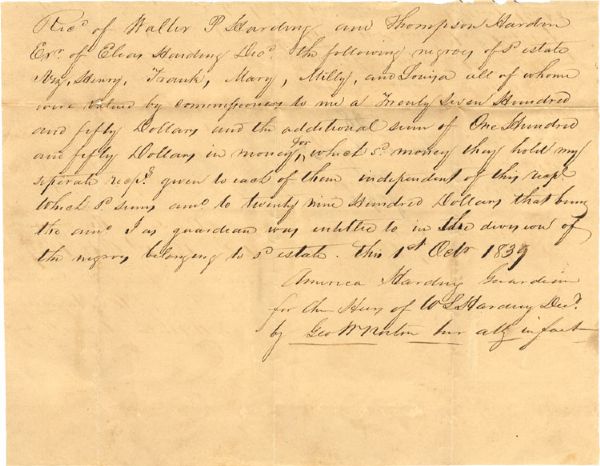 Recd of Walter P Harding and Thompson Hardin
Exr. of Elias Harding Decd the following negroes of sd estate
Henry, Frank, Mary, Milly, and Louisa all of whome
were valued by commissioners to me a Twenty Seven Hundred
and fifty Dollars and the additional sum of One Hundred
and fifty Dollars in money, for which sd money they hold my
seperate recpt given to each of them independent of this recpt
Which sd sums amt to twenty nine Hundred Dollars that being
the amt I as guardian was entitled to in the division of
the negroes belonging to sd estate. This 1st Octr 1839
America Harding Guardian
for the Heirs of W L Harding Decd.
by Geo W Norton her atty in fact